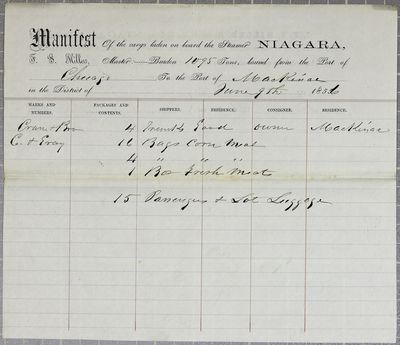 Manifest Of the cargo laden on board the Steamer NIAGARA,
Master—Burden 1095 Tons, bound from the Port of
Chicago To the Port of Mackinac
in the District of June 9th 185
MARKS AND NUMBERS. PACKAGES AND CONTENTS. SHIPPERS. RESIDENCE. CONSIGNEE. RESIDENCE.
4 owner Mackinac
C. & 16 Bags Corn Meal
4 " " "
7 Fresh Meat
15 Passengers & Lot Luggage